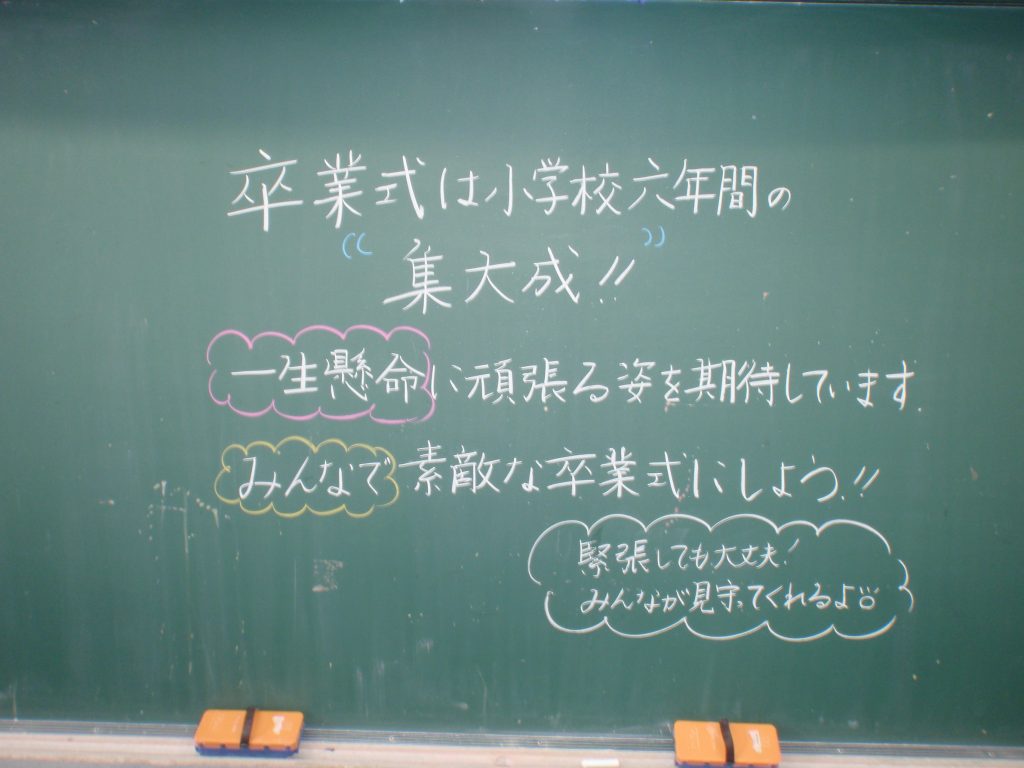 卒業式は小学校六年間の
集大成!!
一生懸命に頑張る姿を期待しています.
みんなで素敵な卒業式にしよう!!
緊張しても大丈夫!
みんなが見守ってくれるよ